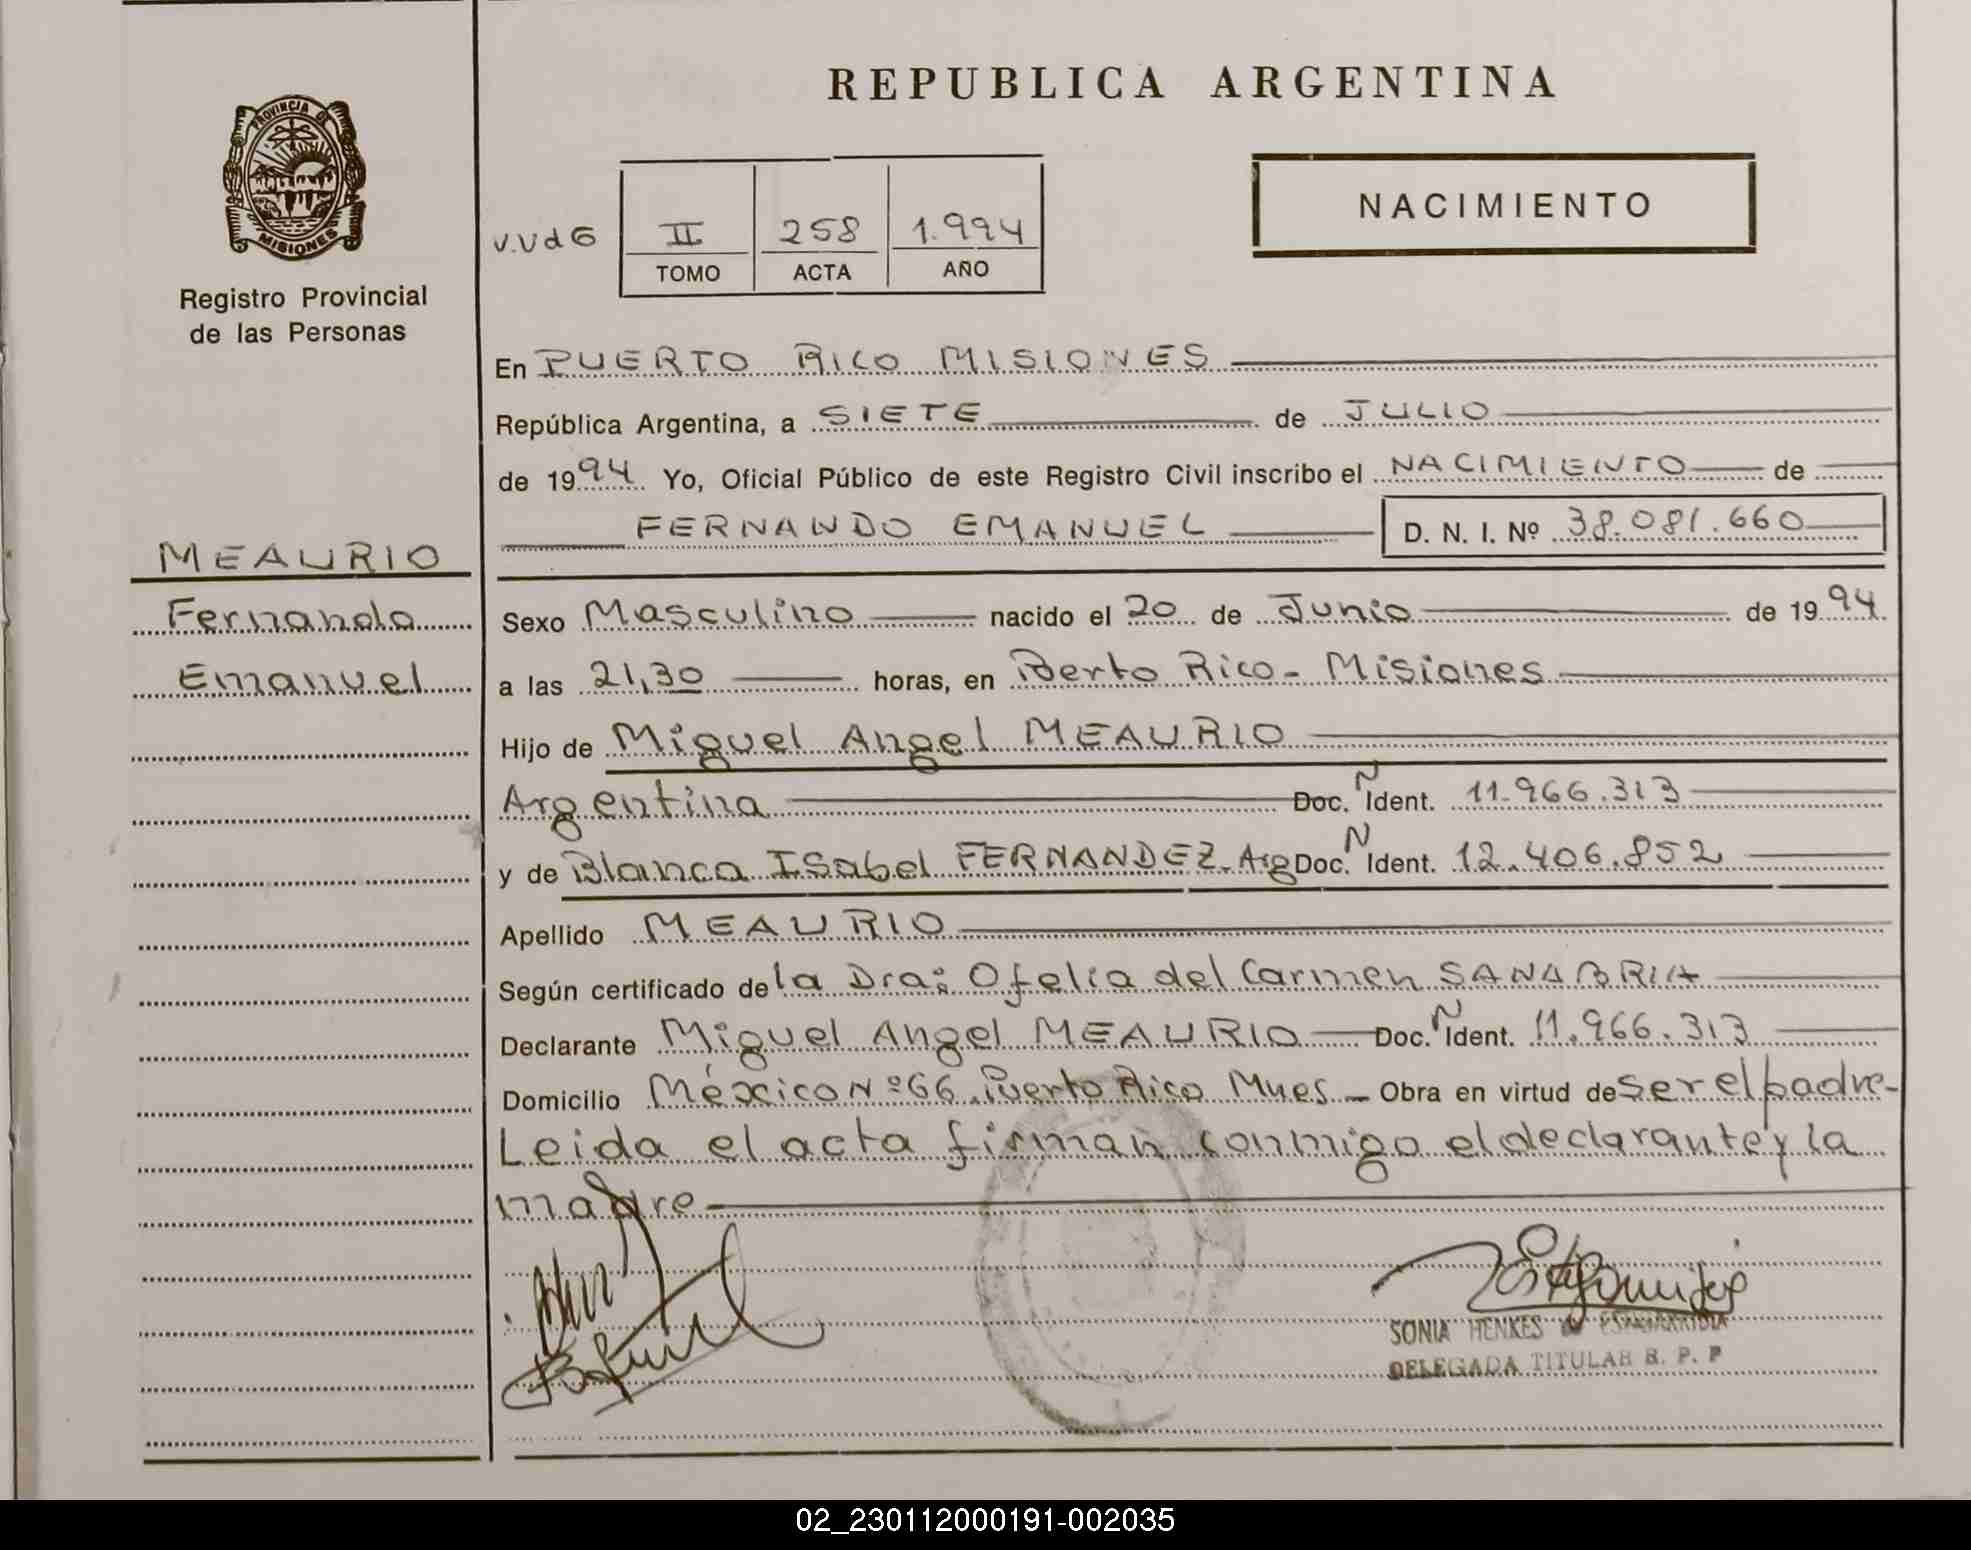 REPUBLICA ARGENTINA
PROVINCIA DE
MISIONES
Registro Provincial
de las Personas
NACIMIENTO
V.VdG
II 258 1.994
TOMO ACTA AÑO
En PUERTO RICO MISIONES
República Argentina, a SIETE de JULIO
de 1994 Yo, Oficial Público de este Registro Civil inscribo el NACIMIENTO de
FERNANDO EMANUEL D. N. I. Nº 38.081.660
MEAURIO
Fernando
Emanuel
Sexo Masculino nacido el 20 de Junio de 1994.
a las 21,30 horas, en Perto Rico - Misiones
Hijo de Miguel Angel MEAURIO
Argentina Doc. N Ident. 11.966.313
y de Blanca ISabel FERNANDEZ. Arg Doc. N Ident. 12.406.852
Apellido MEAURIO
Según certificado de la Dra: Ofelia del Carmen SANABRIA
Declarante Miguel Angel MEAURIO Doc. N Ident. 11.966.313
Domicilio México Nº 66. Puerto Rico Mnes. - Obra en virtud de ser el padre -
Leida el acta firman conmigo el declarante y la
madre
SONIA HENKES de
DELEGADA TITULAR R. P. P
02_230112000191-002035